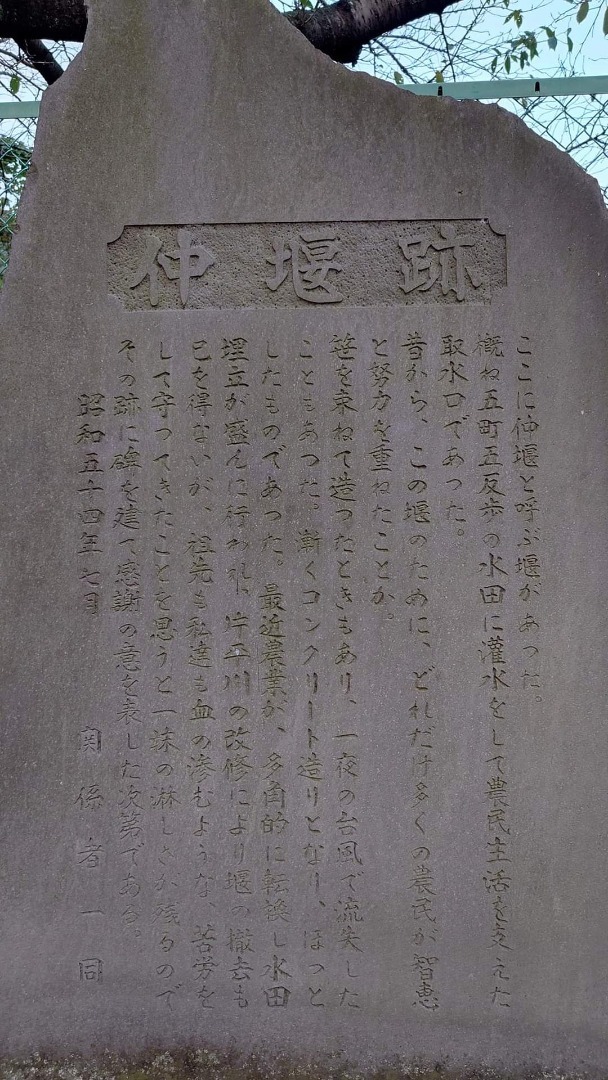 仲堰跡
ここに仲堰と呼ぶ堰があった。
概ね五町五反歩の水田に灌水をして農民生活を支えた
取水口であった。
昔から、この堰のために、どれだけ多くの農民が智恵
と努力を重ねたことか。
笹を束ねて造ったときもあり、一夜の台風で流失した
こともあった。漸くコンクリート造りとなり、ほっと
したものであった。最近農業が、多角的に転換し水田
埋立が盛んに行われ、片平川の改修により堰の撤去も
已を得ないが、祖先も私達も血の滲むような、苦労を
して守ってきたことを思うと一抹の淋しさが残るので
その跡に碑を建て感謝の意を表した次第である。
昭和五十四年七月 関係者一同